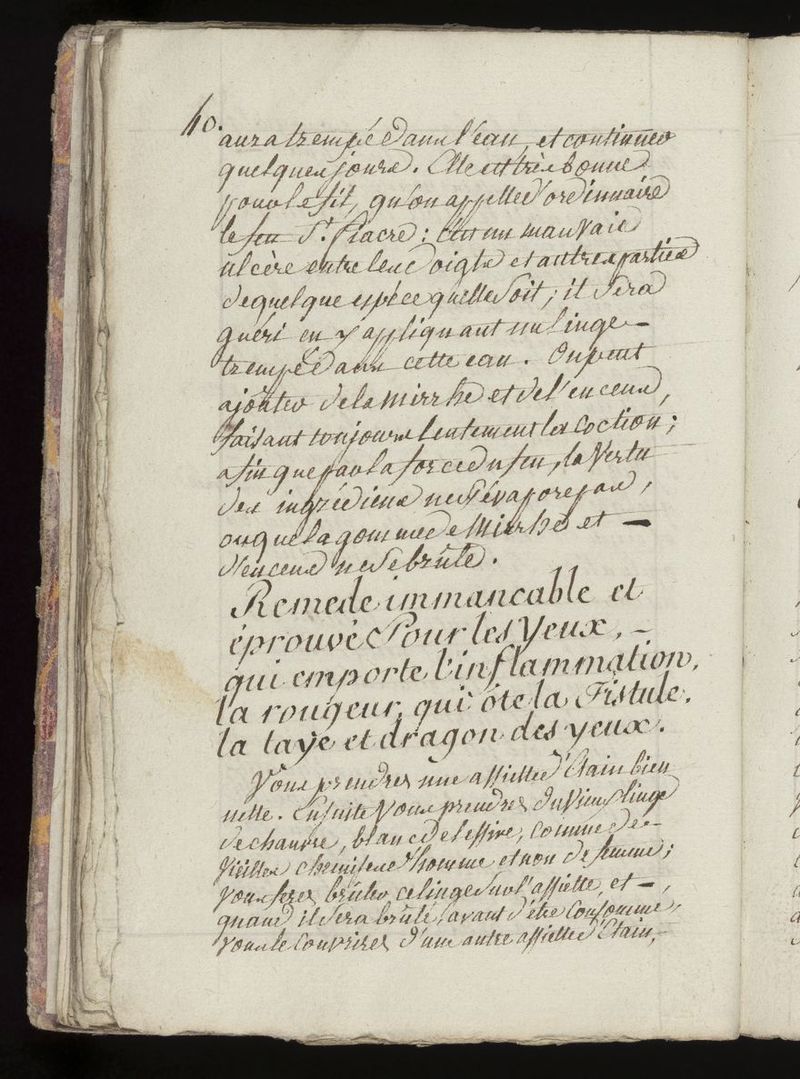 40.
aura trempé dans l'eau, et continuer
quelques jours. Elle est très bonne
pour le fit, qu'on appelle d'ordinnaire
le feu St. fiacre: c'est un mauvais
ulcère entre les doigts et autres parties
de quelque espéce quelle soit; il sera
guéri en y appliquant un linge –
trempé dans cette eau. On peut
ajôuter de la Mirrhe et de l'encens,
faisant toujours lentement la coction;
afin que par la force du feu, la Vertu
des ingrédiens ne s'évapore pas,
ou que la gomme de Mirrhe et –
d'encens ne se brûle.
Remede immancable et
éprouvé Pour les Yeux, –
qui emporte l'inflammation,
la rougeur, qui ôte la Fistule,
la taye et dragon des yeux.
Vous prendrez une assiette d'Etain bien
nette. Ensuite Vous prendrez du Vieux linge
de chanvre, blanc de lessive, comme de –
Vieilles chemises d'homme et non de femme;
Vous ferez brûler ce linge sur l'assiette, et –,
quand il sera brûlé, avant d'être consommé,
vous le couvrirez d'une autre assiette d'Etain, –